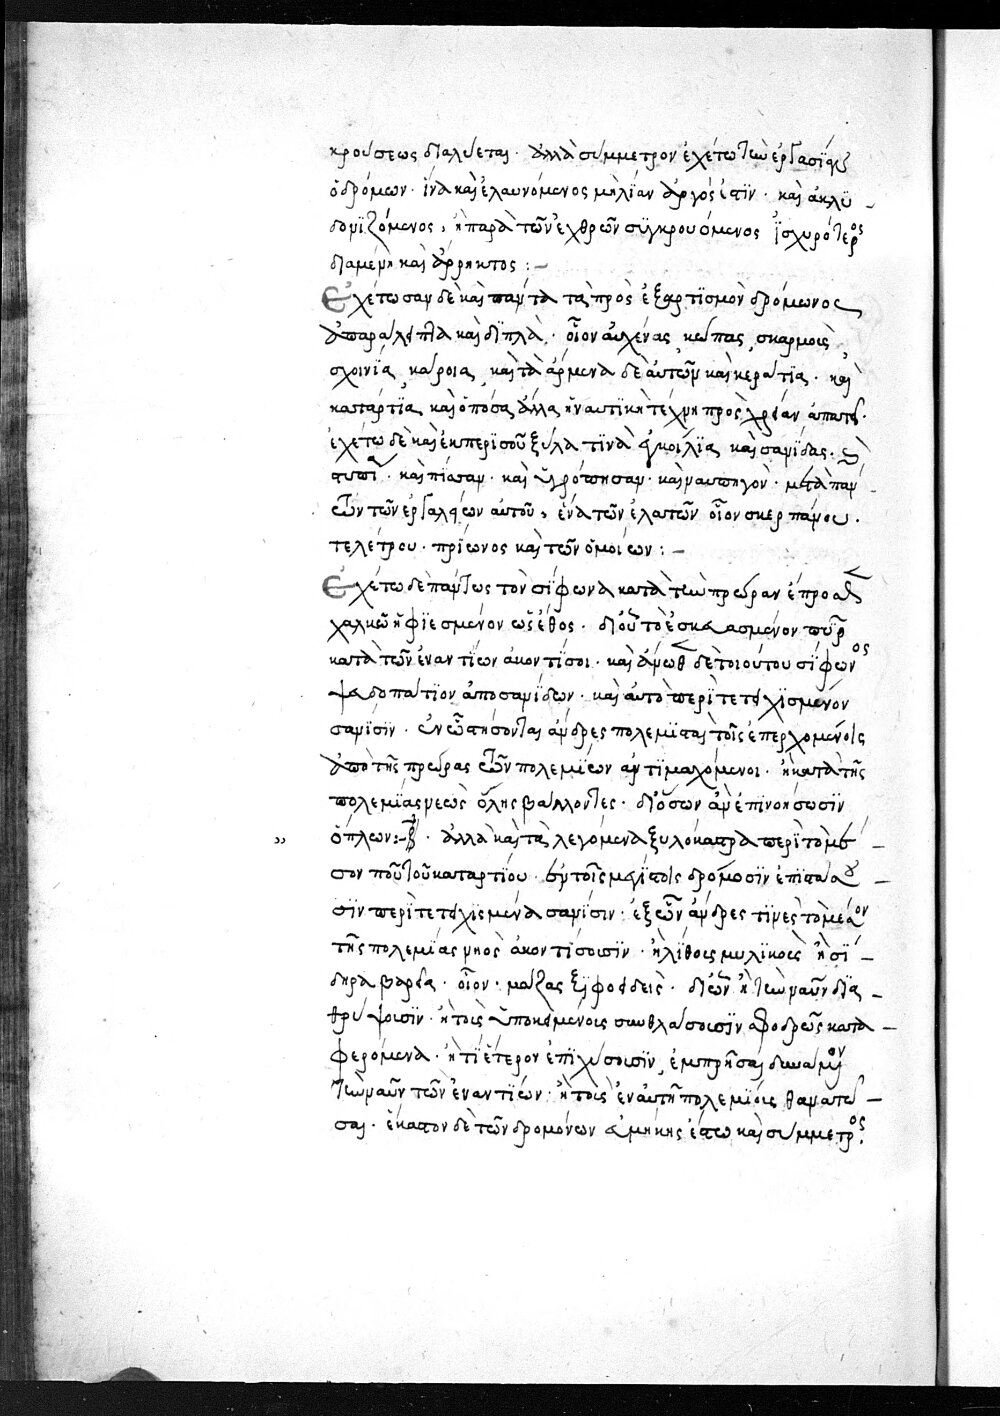 κρούσεως διαλύεται· ἀλλὰ σύμμετρον ἐχέτω τὴν ἐργασίαν
ὁ δρόμων· ἵνα καὶ ἐλαυνόμενος μὴ λίαν ἀργός ἐστϊν· καὶ ἀκλϋ
δονϊζόμενος, ἢ παρὰ τῶν ἐχθρῶν συγκρουόμενος ϊσχυρότερος
διαμένη καὶ ἄρρηκτος :–
Ἐχέτωσαν δὲ καὶ πάντα τὰ πρὸς ἐξαρτϊσμὸν δρόμωνος
ἀπαραλειπτα καὶ δϊπλὰ· οἷον αὐχένας, κώπας, σκαρμοὺς,
σχοινία, καροια, καὶ τὰ ἄρμενα δὲ αὐτῶν καὶ κεράτϊα· καὶ
κατάρτϊα καὶ ὁπόσα ἄλλα ἡ ναυτϊκὴ τέχνη πρὸς χρείαν ἀπαιτεῖ·
ἐχέτω δὲ καὶ ἐκ περϊσοῦ ξύλα τϊνὰ ἐγκοίλϊα καὶ σανίδας· καὶ
στυπϊα· καὶ πίσσαν· καὶ ὑγρόπησαν· καὶ ναυπηγὸν· μετὰ πάν
των τῶν ἐργαλείων αὐτοῦ, ἕνα τῶν ἐλατῶν οἷον σκεπάρνου·
τελέτρου· πρίωνος καὶ τῶν ὁμοίων :–
Ἐχέτω δὲ πάντως τὸν σίφωνα κατὰ τὴν πρώραν ἔπροσθεν
χαλκῶ ἠμφϊεσμένον ὡς ἔθος· δι' οὗ τὸ ἐσκευασμένον πῦρ
κατὰ τῶν ἐναντίων ἀκοντίσοι· καὶ ἄνωθεν δὲ τοιούτου σίφωνος
ψευδοπάτϊον ἀπὸ σανίδων· καὶ αὐτὸ περϊτετειχϊσμένον
σανίσϊν· ἐν ὧ στήσονται ἄνδρες πολεμϊσταὶ τοῖς ἐπερχομένοις
ἀπὸ τῆς πρώρας τῶν πολεμίων ἀντϊμαχόμενοι· ἢ κατὰ τῆς
πολεμίας νεὼς ὅλης βάλλοντες· δι' ὅσων ἂν ἐπϊνοήσωσϊν
ὅπλων :– ἀλλὰ καὶ τὰ λεγόμενα ξυλόκαστρα περϊ τὸ μέ
σον που τοῦ καταρτίου· ἐν τοῖς μεγίστοις δρόμοσϊν ἐπϊστήσου
σϊν περϊτετειχϊσμένα σανίσιν· ἐξ ὧν ἄνδρες τϊνὲς τὸ μέσον
τῆς πολεμίας νηὸς ἀκοντίσοισϊν· ἢ λίθοις μυλϊκοὺς ἢ σϊ
δηρα βαρέα· οἷον· μάζας ξϊφοειδεῖς· δι' ὧν ἢ τὴν ναῦν δϊα
θρύψοισϊν· ἢ τοὺς ὑποκειμένοις συνθλάσοισϊν σφοδρῶς κατα
φερόμενα· ἢ τϊ ἕτερον ἐπϊχύσοισϊν, ἐμπρῆσαι δυνάμενον
τὴν ναῦν τῶν ἐναντίων· ἢ τοὺς ἐν αὐτῆ πολεμίους θανατῶ
σαι· ἕκαστον δὲ τῶν δρομόνων εὐμήκης ἔστω καὶ σύμμετρος,